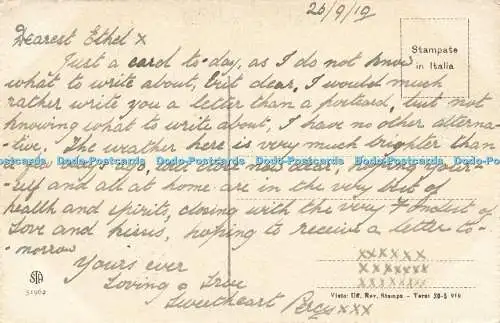 20/9/19
Dearest Ethel x
Stampate
in Italia
Just a card to-day, as I do not know
what to write about, but dear, I would much
rather write you a letter than a postcard, but not
knowing what to write about, I have no other alterna-
-tive. The weather here is very much brighter than
a few days ago, dear, hoping your-
self and all at home are in the very best of
health and spirits, closing with the very Fondest of
Love and kisses, hoping to receive a letter to-
morrow
Yours ever
Loving & True
Sweetheart Percy xxx
xxxxxx
xxxxxxx
xxxxxxx
STA
31962
Visto: Uff. Rev. Stampa - Terni 30-5 919
Dodo-Postcards Dodo-Postcards Dodo-Postcards Dodo-Postcards Dodo-Postcards Dodo-Postcards